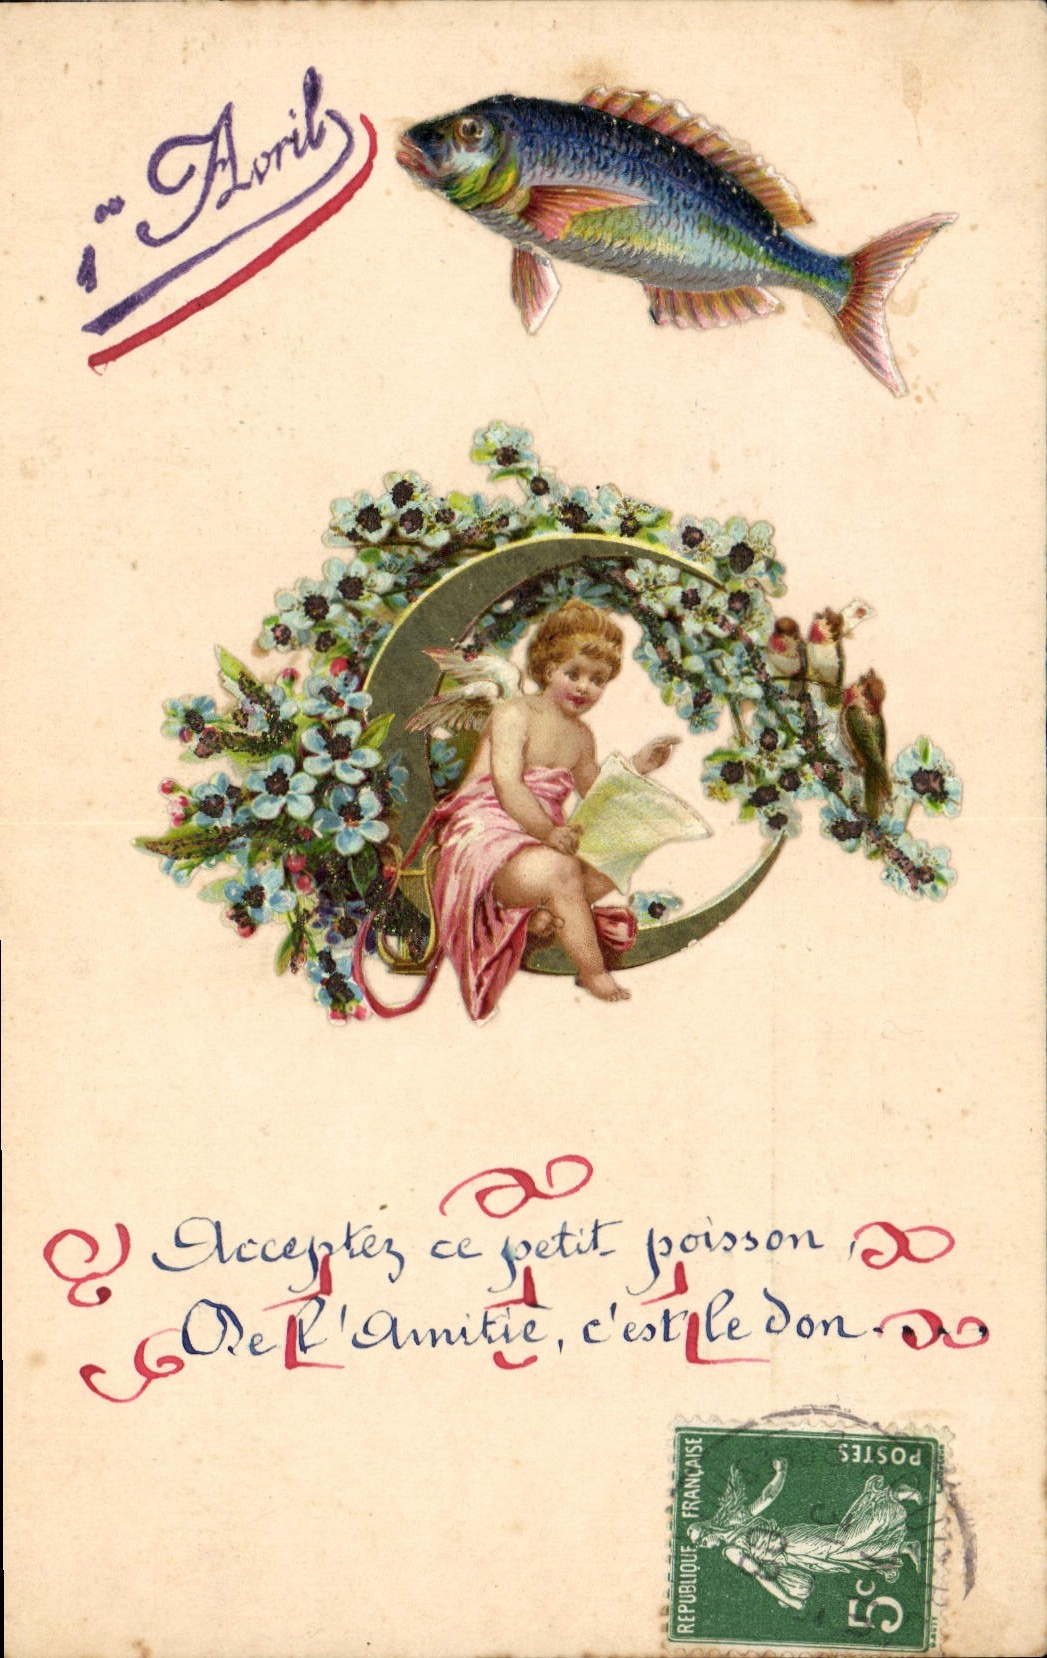 1er Avril
Acceptez ce petit poisson,
De l'Amitié, c'est le don....
RÉPUBLIQUE FRANÇAISE
POSTES
5c